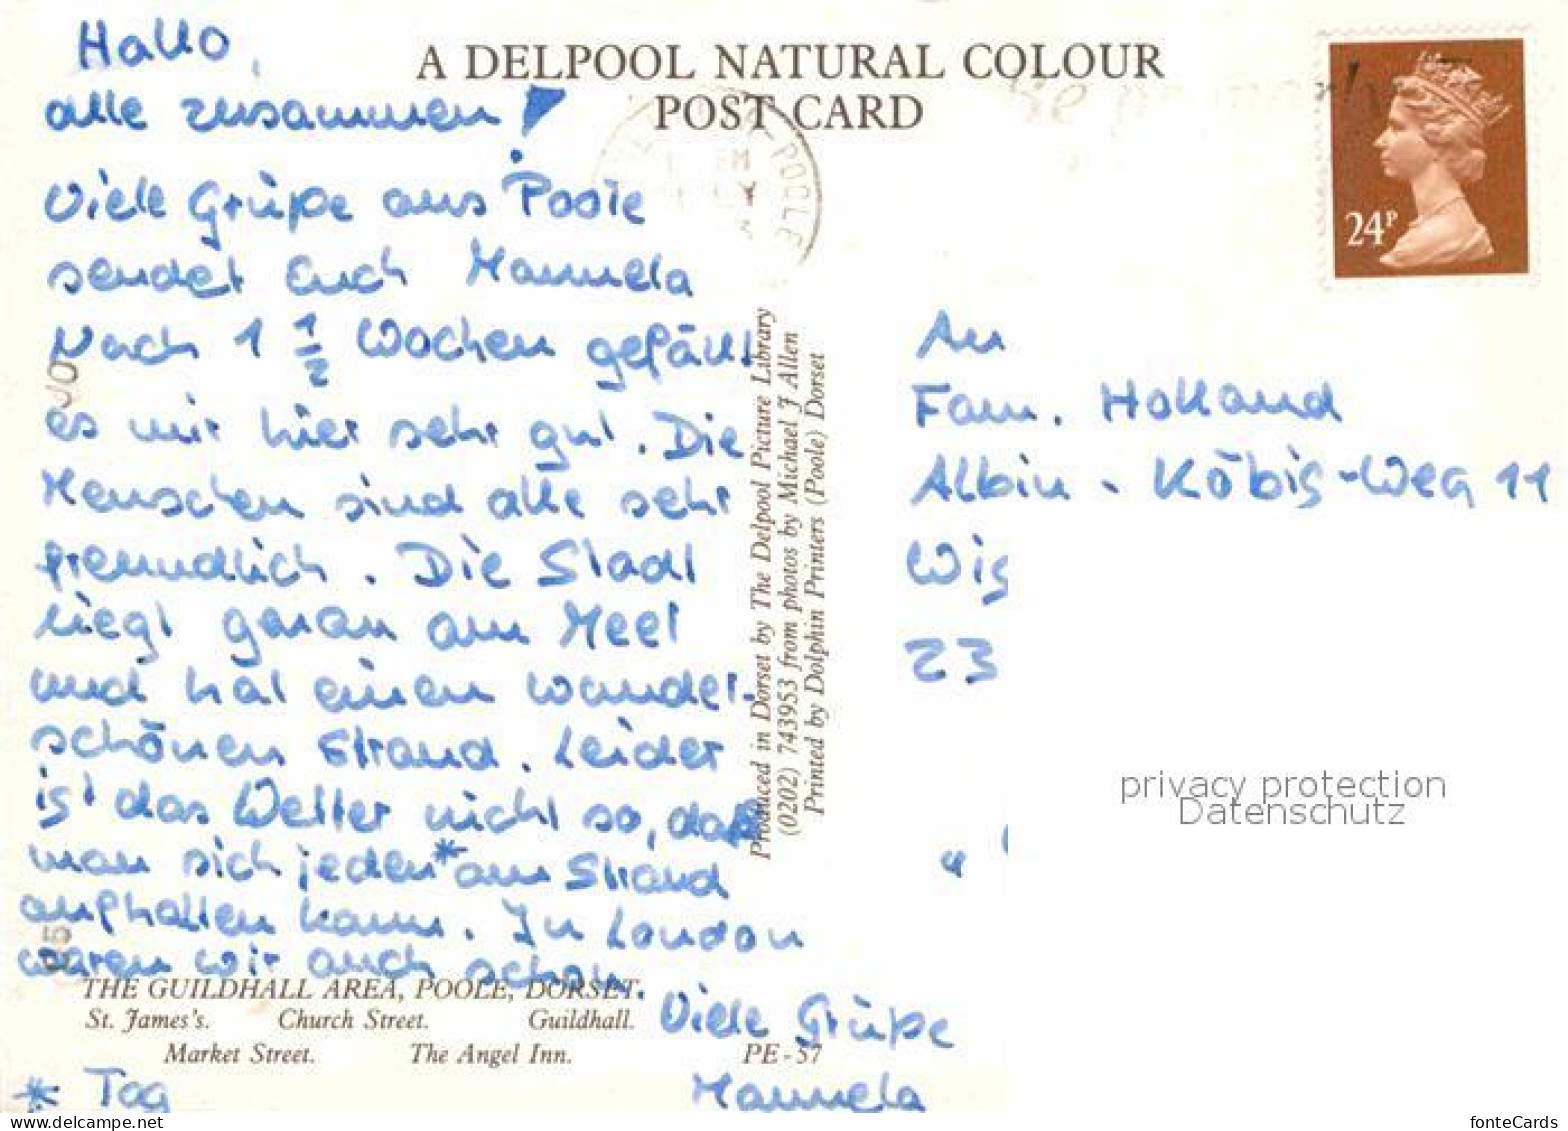 Hallo,
alle zusammen!
Viele Grüße aus Poole
sendet Euch Manuela
Nach 1 1/2 Wochen gefällt
es mir hier sehr gut. Die
Menschen sind alle sehr
freundlich. Die Stadt
liegt genau am Meer
und hat einen wunder-
schönen Strand. Leider
ist das Wetter nicht so, daß
man sich jeden* am Strand
aufhalten kann. In London
waren wir auch schon.
Viele Grüße
Manuela
* Tag
A DELPOOL NATURAL COLOUR
POST CARD
POOLE
24P
Produced in Dorset by The Delpool Picture Library
(0202) 743953 from photos by Michael J Allen
Printed by Dolphin Printers (Poole) Dorset
An
Fam. Holland
Albin-Köbis-Weg 11
Wis
23
THE GUILDHALL AREA, POOLE, DORSET.
St. James's. Church Street. Guildhall.
Market Street. The Angel Inn. PE-57
privacy protection
Datenschutz
fonteCards